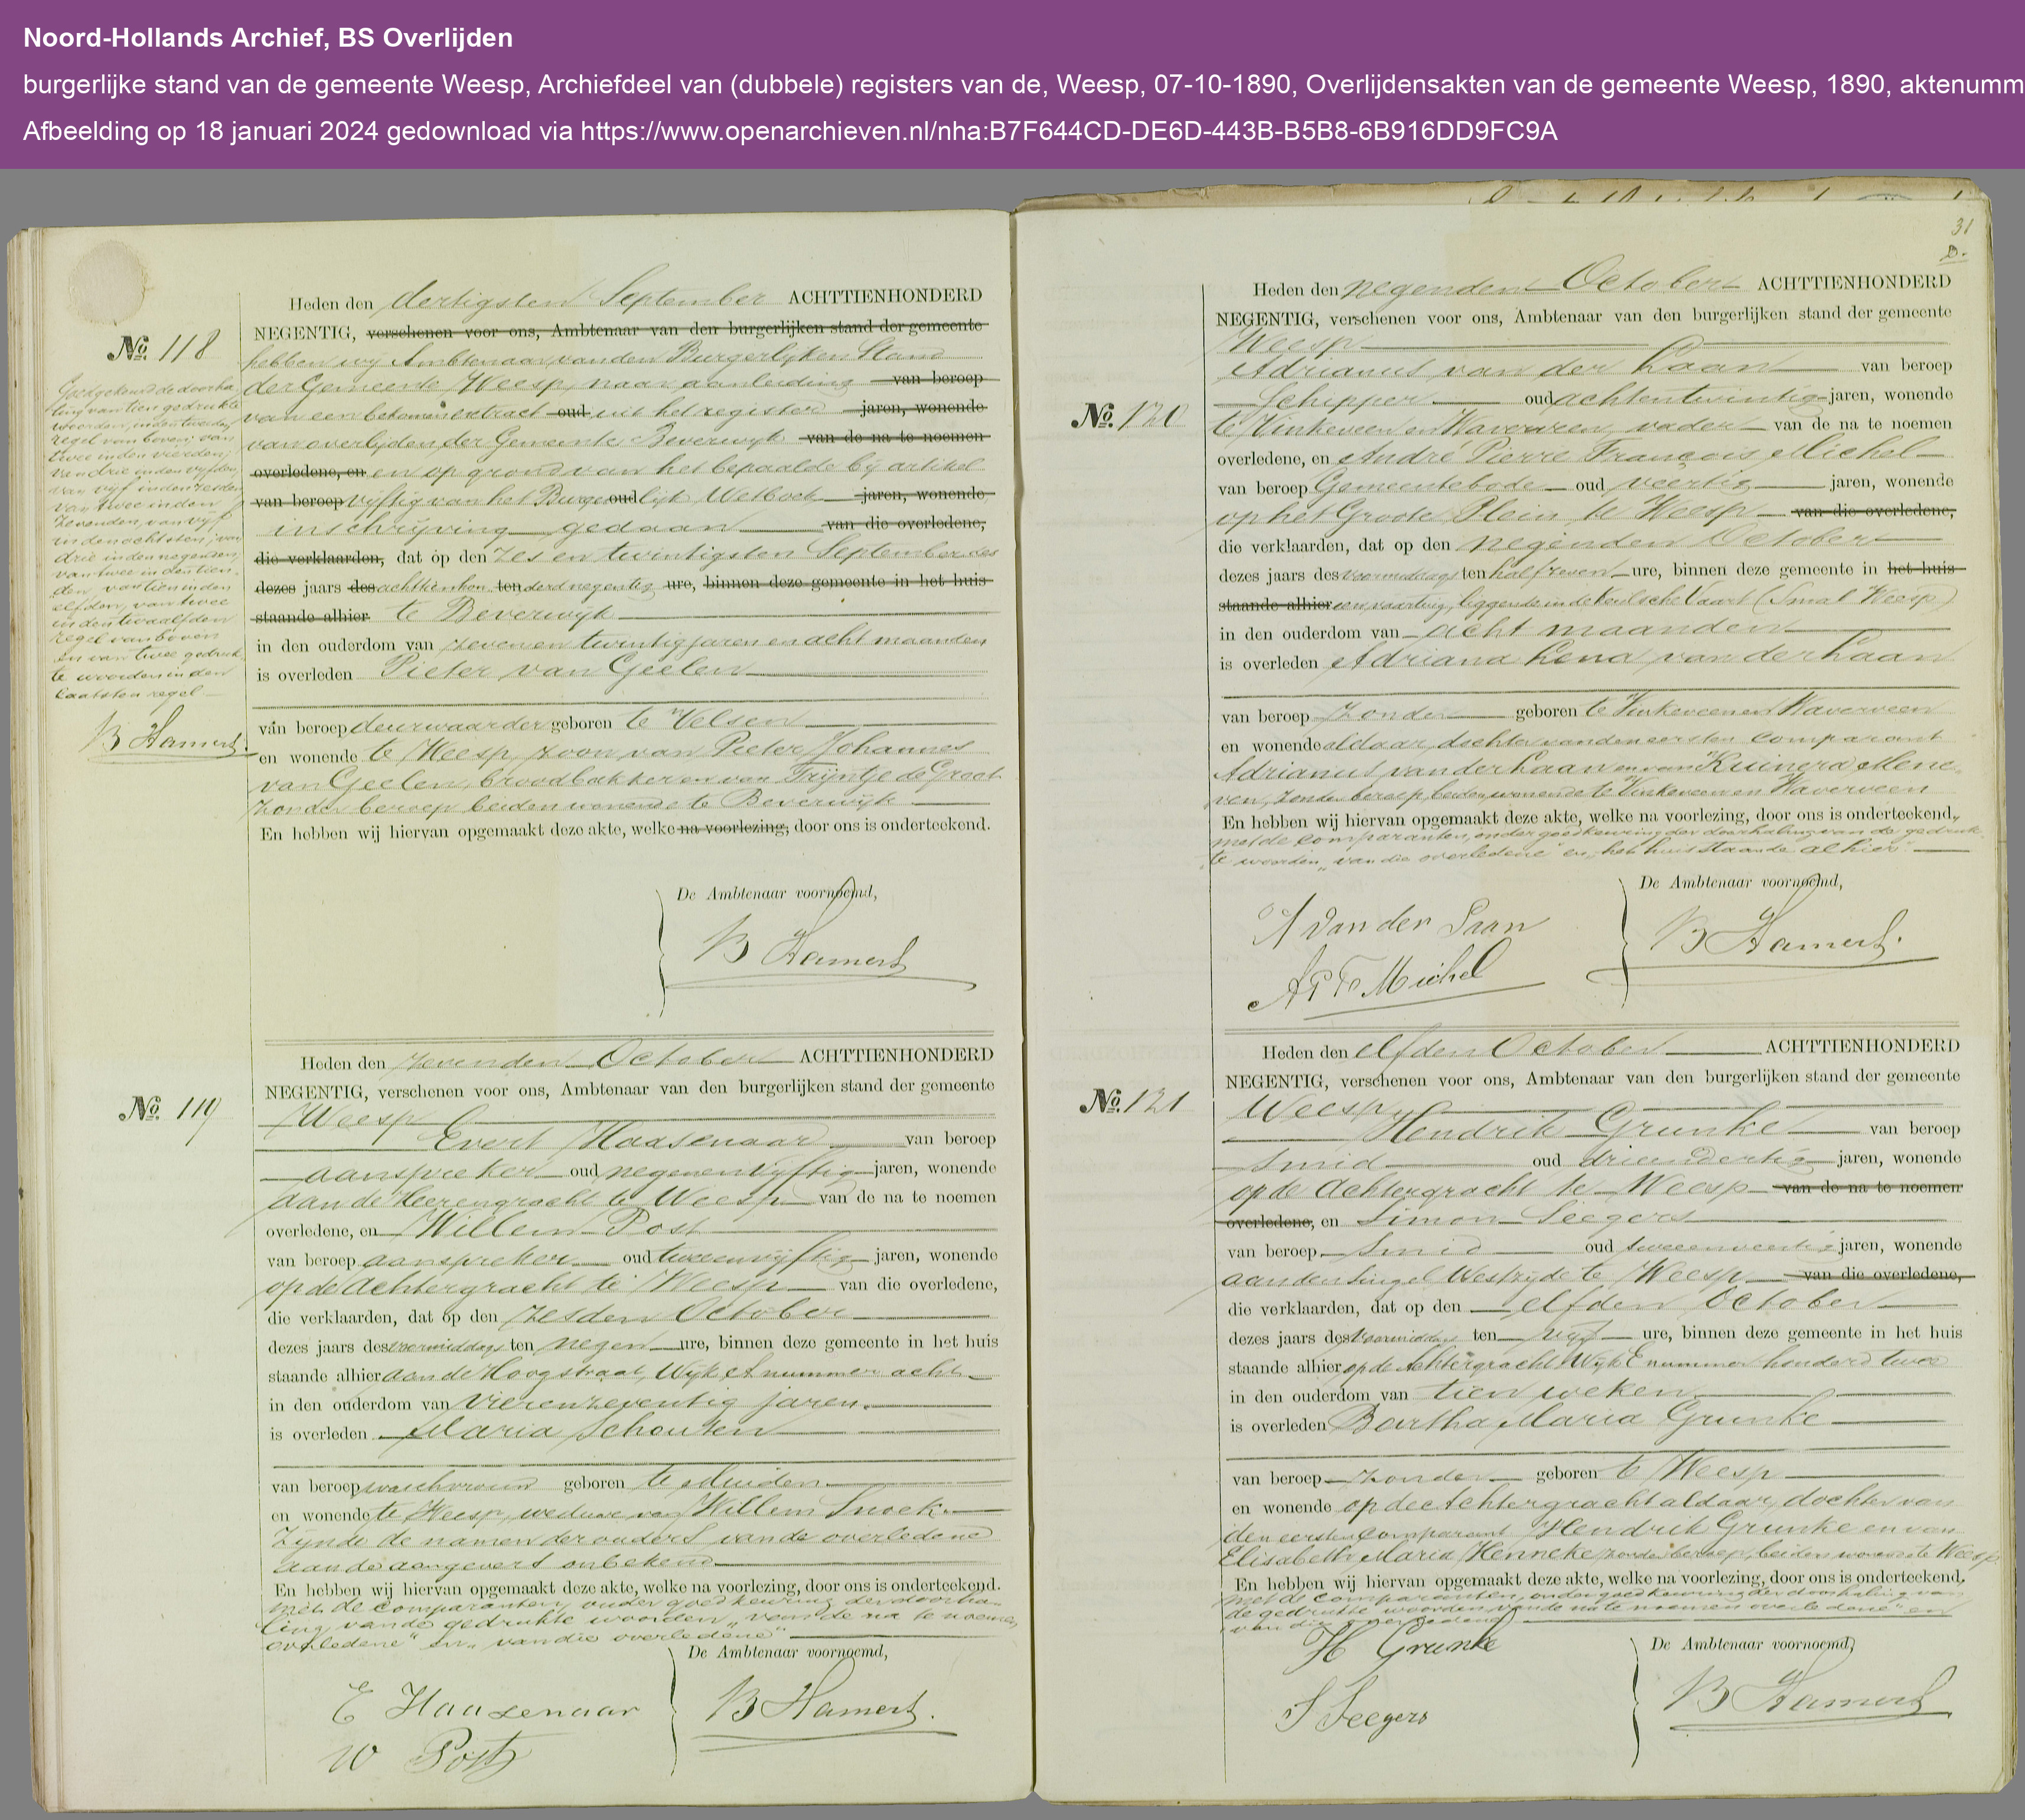 Noord-Hollands Archief, BS Overlijden
burgerlijke stand van de gemeente Weesp, Archiefdeel van (dubbele) registers van de, Weesp, 07-10-1890, Overlijdensakten van de gemeente Weesp, 1890, aktenumm
Afbeelding op 18 januari 2024 gedownload via https://www.openarchieven.nl/nha:B7F644CD-DE6D-443B-B5B8-6B916DD9FC9A
No. 118
Goedgekeurd de doorha-
ling van tien gedrukte
woorden in den tweeden
regel van boven; van
twee in den vierden;
van drie in den vijfden,
van vijf in den zesden
van twee in den
zevenden, van vijf
in den achtsten; van
drie in den negenden
van twee in den tien-
den, van tien in den
elfden, van twee
in den twaalfden
regel van boven
en van twee gedruk-
te woorden in den
laatsten regel
B Hamert
Heden den dertigsten September ACHTTIENHONDERD
NEGENTIG, verschenen voor ons, Ambtenaar van den burgerlijken stand der gemeente
hebben wij Ambtenaar van den Burgerlijken Stand
der Gemeente Weesp, naar aanleiding van beroep
van een bekomen extract oud uit het register jaren, wonende
van overlijden der Gemeente Beverwijk van de na te noemen
overledene, en en op grond van het bepaalde bij artikel
van beroep vijftig van het Burger oud lijk Wetboek jaren, wonende
inschrijving gedaan van die overledene,
die verklaarden, dat op den zes en twintigsten September des
dezes jaars des achttienhon ten derd negentig ure, binnen deze gemeente in het huis
staande alhier te Beverwijk
in den ouderdom van zeven en twintig jaren en acht maanden
is overleden Pieter van Geelen
van beroep deurwaarder geboren te Velsen
en wonende te Weesp, zoon van Pieter Johannes
van Geelen, broodbakker en van Trijntje de Graat
zonder beroep beiden wonende te Beverwijk
En hebben wij hiervan opgemaakt deze akte, welke na voorlezing, door ons is onderteekend.
De Ambtenaar voornoemd,
B Hamert
No. 119
Heden den zevenden October ACHTTIENHONDERD
NEGENTIG, verschenen voor ons, Ambtenaar van den burgerlijken stand der gemeente
Weesp
Evert Haasenaar van beroep
aanspreker oud negenenvijftig jaren, wonende
aan de Heerengracht te Weesp van de na te noemen
overledene, en Willem Post
van beroep aanspreker oud tweeenvijftig jaren, wonende
op de Achtergracht te Weesp van die overledene,
die verklaarden, dat op den zesden October
dezes jaars des voormiddags ten negen ure, binnen deze gemeente in het huis
staande alhier aan de Hoogstraat, Wijk A nummer acht
in den ouderdom van vierenzeventig jaren.
is overleden Maria Schouten
van beroep waschvrouw geboren te Muiden
en wonende te Weesp, weduwe van Willem Snoek
Zijnde de namen der ouders van de overledene
aan de aangevers onbekend
En hebben wij hiervan opgemaakt deze akte, welke na voorlezing, door ons is onderteekend.
met de comparanten, onder goedkeuring der doorha-
ling van de gedrukte woorden "van de na te noemen
overledene" en "van die overledene"
De Ambtenaar voornoemd,
E Haasenaar
W Post
B Hamert.
31
D.
No. 120
Heden den negenden October ACHTTIENHONDERD
NEGENTIG, verschenen voor ons, Ambtenaar van den burgerlijken stand der gemeente
Weesp
Adrianus van der Laan van beroep
Schipper oud achtentwintig jaren, wonende
te Vinkeveen en Waverveen, vader van de na te noemen
overledene, en André Pierre François Michel
van beroep Gemeentebode oud veertig jaren, wonende
op het Groote Plein te Weesp van die overledene,
die verklaarden, dat op den negenden October
dezes jaars des voormiddags ten half zeven ure, binnen deze gemeente in het huis
staande alhier een vaartuig, liggende in de Keulsche Vaart (Smal Weesp)
in den ouderdom van acht maanden
is overleden Adriana Lena van der Laan
van beroep zonder geboren te Vinkeveen en Waverveen
en wonende aldaar, dochter van den eersten comparant
Adrianus van der Laan en van Kuinera Mene-
ven, zonder beroep, beiden wonende te Vinkeveen en Waverveen
En hebben wij hiervan opgemaakt deze akte, welke na voorlezing, door ons is onderteekend,
met de comparanten, onder goedkeuring der doorhaling van de gedruk-
te woorden "van die overledene" en "het huis staande alhier"
De Ambtenaar voornoemd,
A van der Laan
A P F Michel
B Hamert.
No. 121
Heden den elfden October ACHTTIENHONDERD
NEGENTIG, verschenen voor ons, Ambtenaar van den burgerlijken stand der gemeente
Weesp
Hendrik Grunke van beroep
Smid oud drieendertig jaren, wonende
op de Achtergracht te Weesp van de na te noemen
overledene, en Simon Seegers
van beroep Smid oud tweeenveertig jaren, wonende
aan den Singel Westzijde te Weesp van die overledene,
die verklaarden, dat op den elfden October
dezes jaars des Voormiddags ten vijf ure, binnen deze gemeente in het huis
staande alhier op de Achtergracht Wijk E nummer honderd twee
in den ouderdom van tien weken
is overleden Bartha Maria Grunke
van beroep zonder geboren te Weesp
en wonende op de Achtergracht aldaar, dochter van
den eersten comparant Hendrik Grunke en van
Elisabeth Maria Henneke, zonder beroep, beiden wonende te Weesp
En hebben wij hiervan opgemaakt deze akte, welke na voorlezing, door ons is onderteekend,
met de comparanten, onder goedkeuring der doorhaling van
de gedrukte woorden "van de na te noemen overledene" en
"van die overledene"
De Ambtenaar voornoemd,
H Grunke
S Seegers
B Hamert